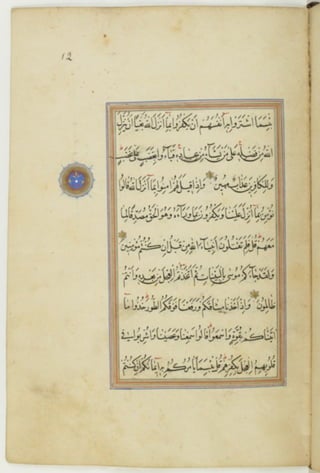 12
بئسما اشتروا به أنفسهم أن يكفروا بما أنزل الله بغيا أن ينزل
الله من فضله على من يشاء من عباده فباؤ بغضب على غضب
وللكافرين عذاب مهين وإذا قيل لهم امنوا بما أنزل الله قالوا
نؤمن بما أنزل علينا ويكفرون بما وراءه وهو الحق مصدقا لما
معهم قل فلم تقتلون أنبياء الله من قبل إن كنتم مؤمنين
ولقد جاءكم موسى بالبينات ثم اتخذتم العجل من بعده وأنتم
ظالمون وإذ أخذنا ميثاقكم ورفعنا فوقكم الطور خذوا ما
اتيناكم بقوة واسمعوا قالوا سمعنا وعصينا وأشربوا في
قلوبهم العجل بكفرهم قل بئسما يأمركم به إيمانكم إن كنتم